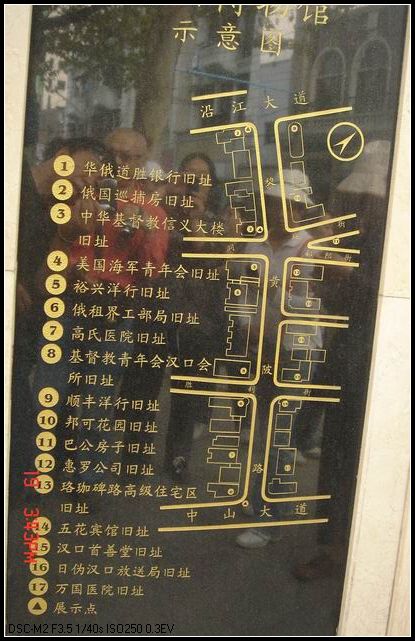 物馆
示意图
沿江大道
1 华俄道胜银行旧址
2 俄国巡捕房旧址
3 中华基督教信义大楼
旧址
4 美国海军青年会旧址
5 裕兴洋行旧址
6 俄租界工部局旧址
7 高氏医院旧址
8 基督教青年会汉口会
所旧址
9 顺丰洋行旧址
10 邦可花园旧址
11 巴公房子旧址
12 惠罗公司旧址
13 珞珈碑路高级住宅区
旧址
14 五花宾馆旧址
15 汉口首善堂旧址
16 日伪汉口放送局旧址
17 万国医院旧址
▲ 展示点
黄
陂
路
街
中山大道
19 3:43PM
DSC-M2 F3.5 1/40s ISO250 0.3EV